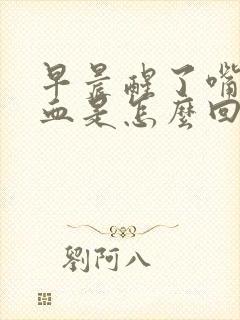 早晨醒了嘴
血是怎麼回
劉阿八